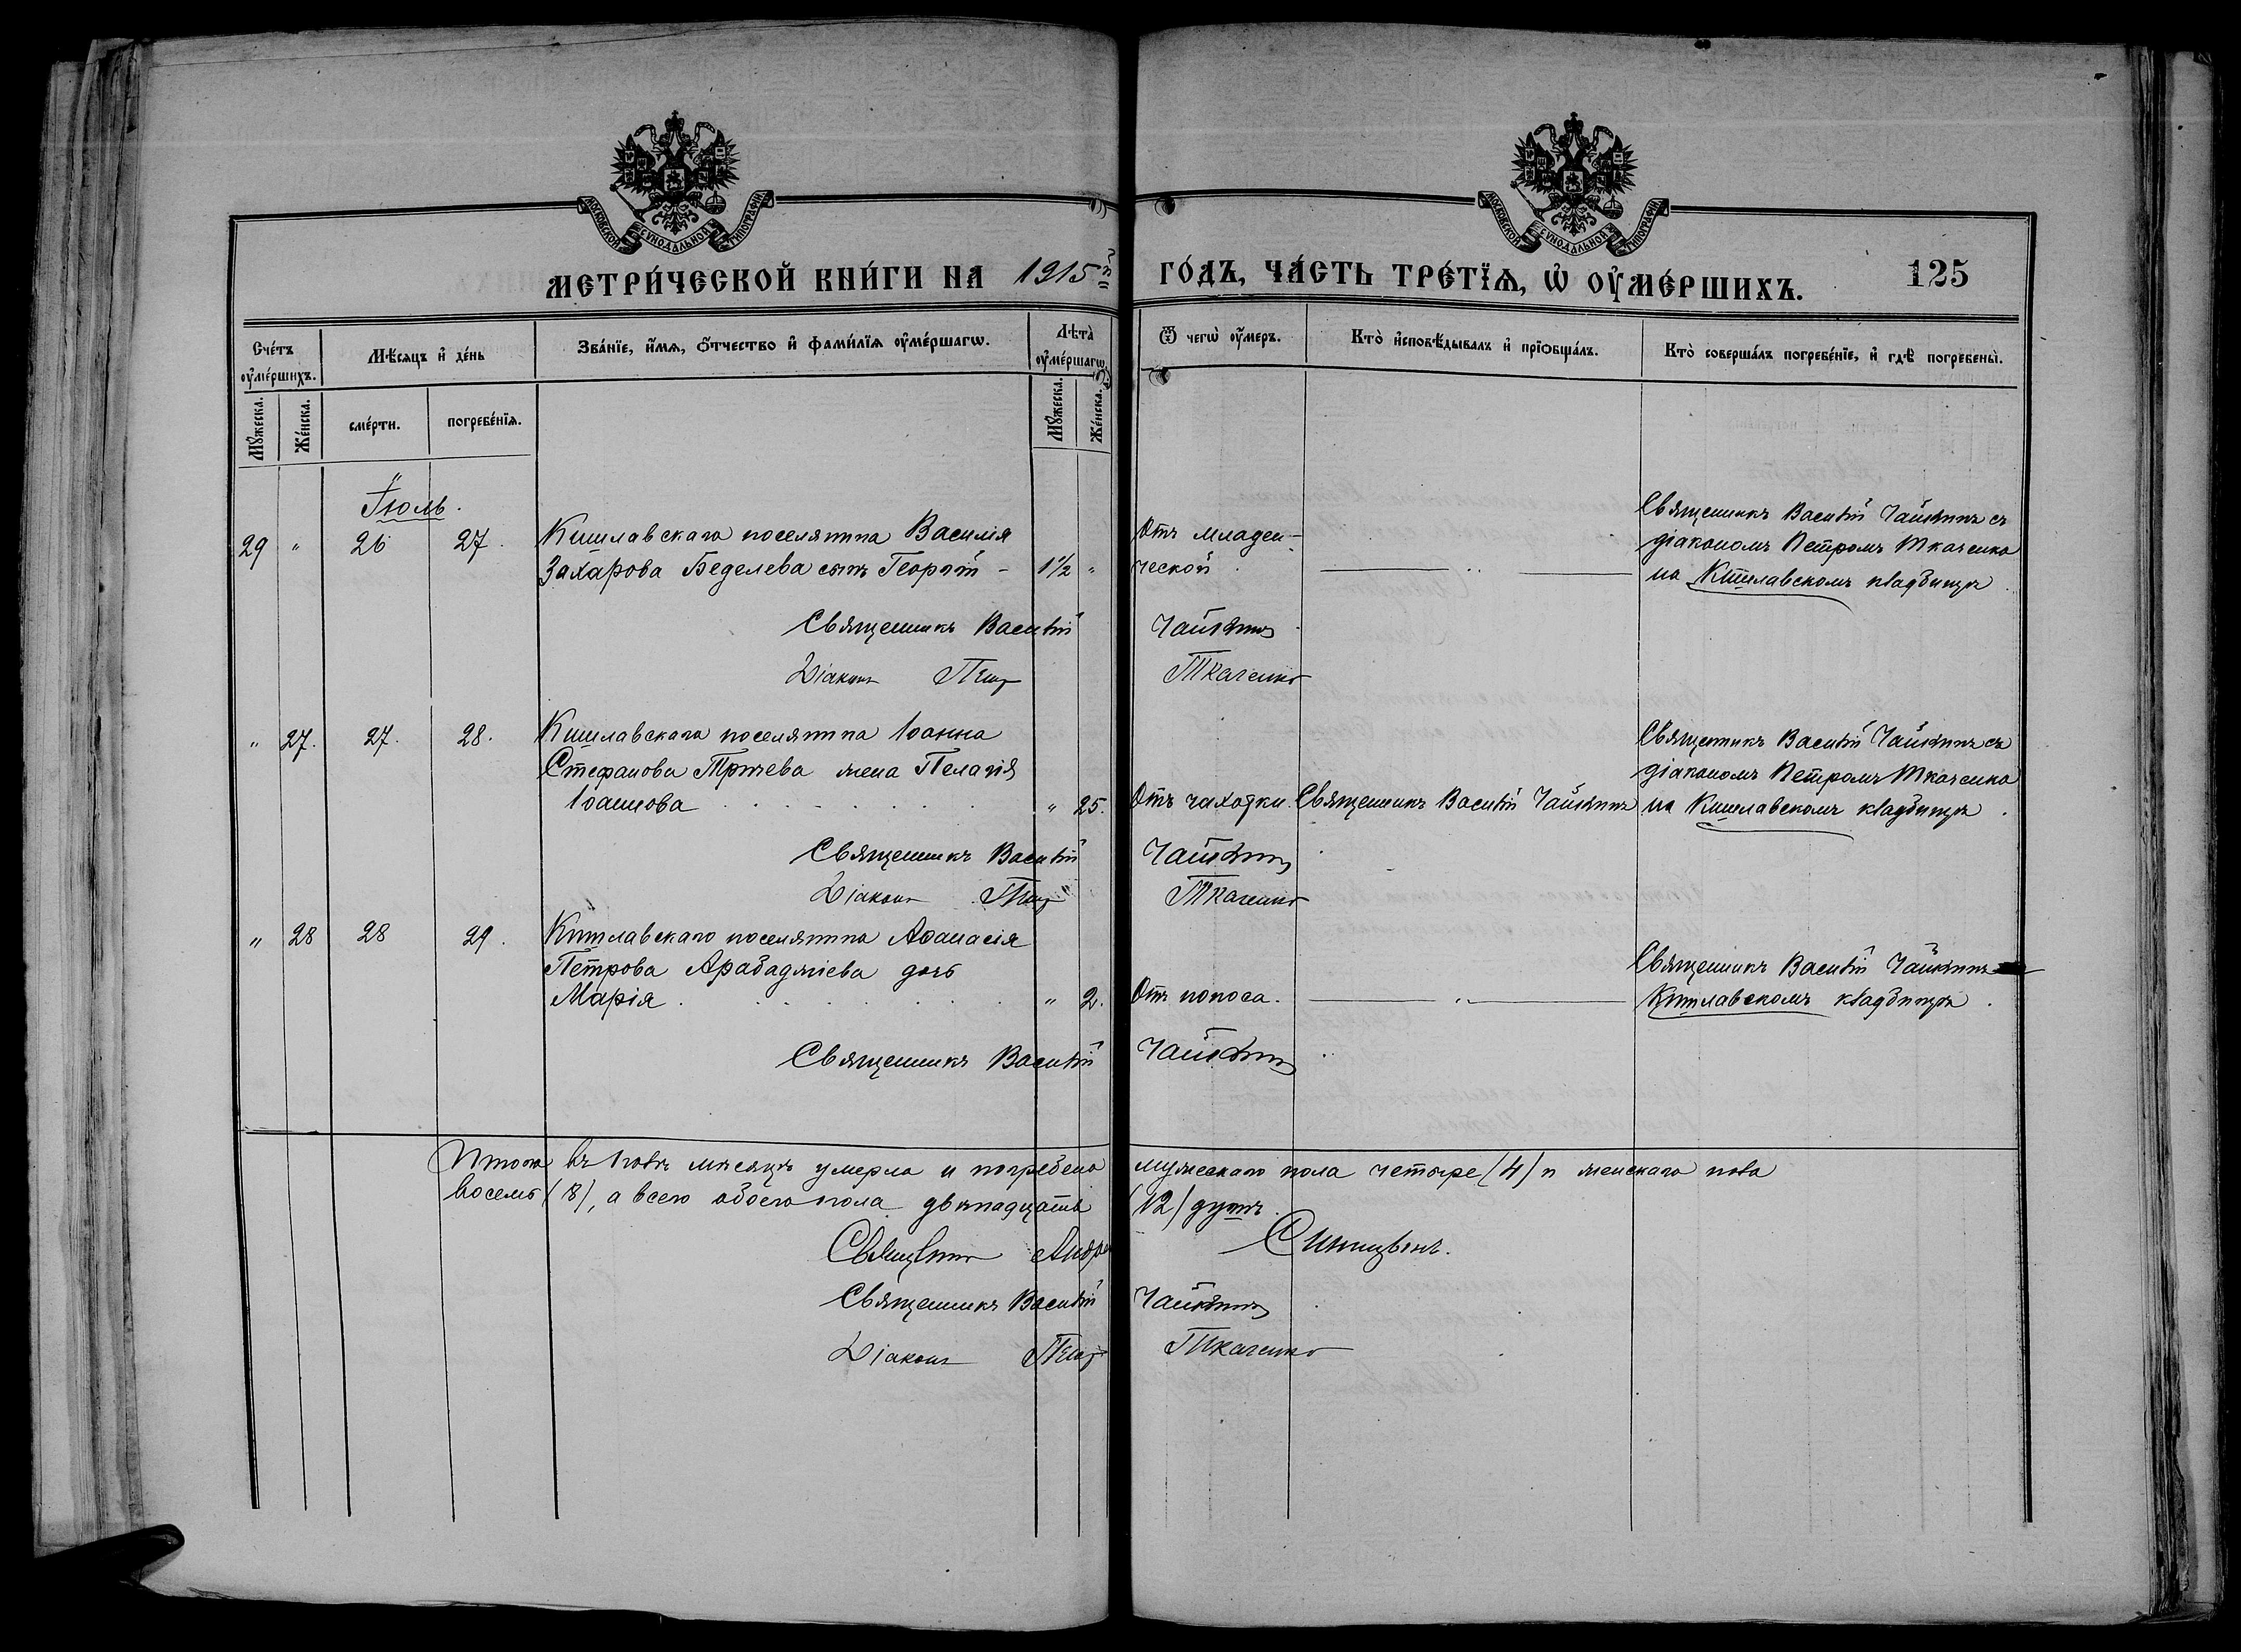 МОСКОВСКОЙ СУНОДАЛЬНОЙ ТИПОГРАФІИ
МОСКОВСКОЙ СУНОДАЛЬНОЙ ТИПОГРАФІИ
МЕТРИ́ЧЕСКОЙ КНИ́ГИ НА 1915й ГО́ДЪ, ЧА́СТЬ ТРЕ́ТЇѦ, Ѡ҆ ОУ҆МЕ́РШИХЪ. 125
Сче́тъ оу҆ме́ршихъ.
Мѣ́сяцъ и҆ де́нь
Зва́нїе, и҆́мѧ, ѻ҆́тчество и҆ фами́лїѧ оу҆ме́ршагѡ.
Лѣта̀ оу҆ме́ршагѡ.
Ѿ чегѡ̀ оу҆́меръ.
Кто̀ и҆сповѣ́дывалъ и҆ прїѻбща́лъ.
Кто̀ соверша́лъ погребе́нїе, и҆ гдѣ̀ погребены̀.
Мꙋ́жеска.
Же́нска.
сме́рти.
погребе́нїѧ.
Мꙋ́жеска.
Же́нска.
Іюль.
29 " 26 27. Кишлавскаго поселянина Василія
Захарова Беделева сынъ Георгій - 1½ "
Отъ младен-
ческой.
"
Священникъ Василій Чайкинъ съ
діакономъ Петромъ Ткаченко
на Кишлавскомъ кладбищѣ.
Священникъ Василій Чайкинъ
Діаконъ Петръ Ткаченко
" 27. 27. 28. Кишлавскаго поселянина Іоанна
Стефанова жена Пелагія
Іоаннова " 25.
Отъ чахотки. Священникъ Василій Чайкинъ
Священникъ Василій Чайкинъ съ
діакономъ Петромъ Ткаченко
на Кишлавскомъ кладбищѣ.
Священникъ Василій Чайкинъ
Діаконъ Петръ Ткаченко
" 28 28 29. Кишлавскаго поселянина Аѳанасія
Петрова Арабаджіева дочь
Марія " 2.
Отъ поноса.
"
Священникъ Василій Чайкинъ
Кишлавскомъ кладбищѣ.
Священникъ Василій Чайкинъ
Итого въ Іюлѣ мѣсяцѣ умерло и погребено мужескаго пола четыре (4) и женскаго пола
восемь (8), а всего обоего пола двѣнадцать (12) душъ.
Священникъ Андрей
Священникъ Василій Чайкинъ
Діаконъ Петръ Ткаченко